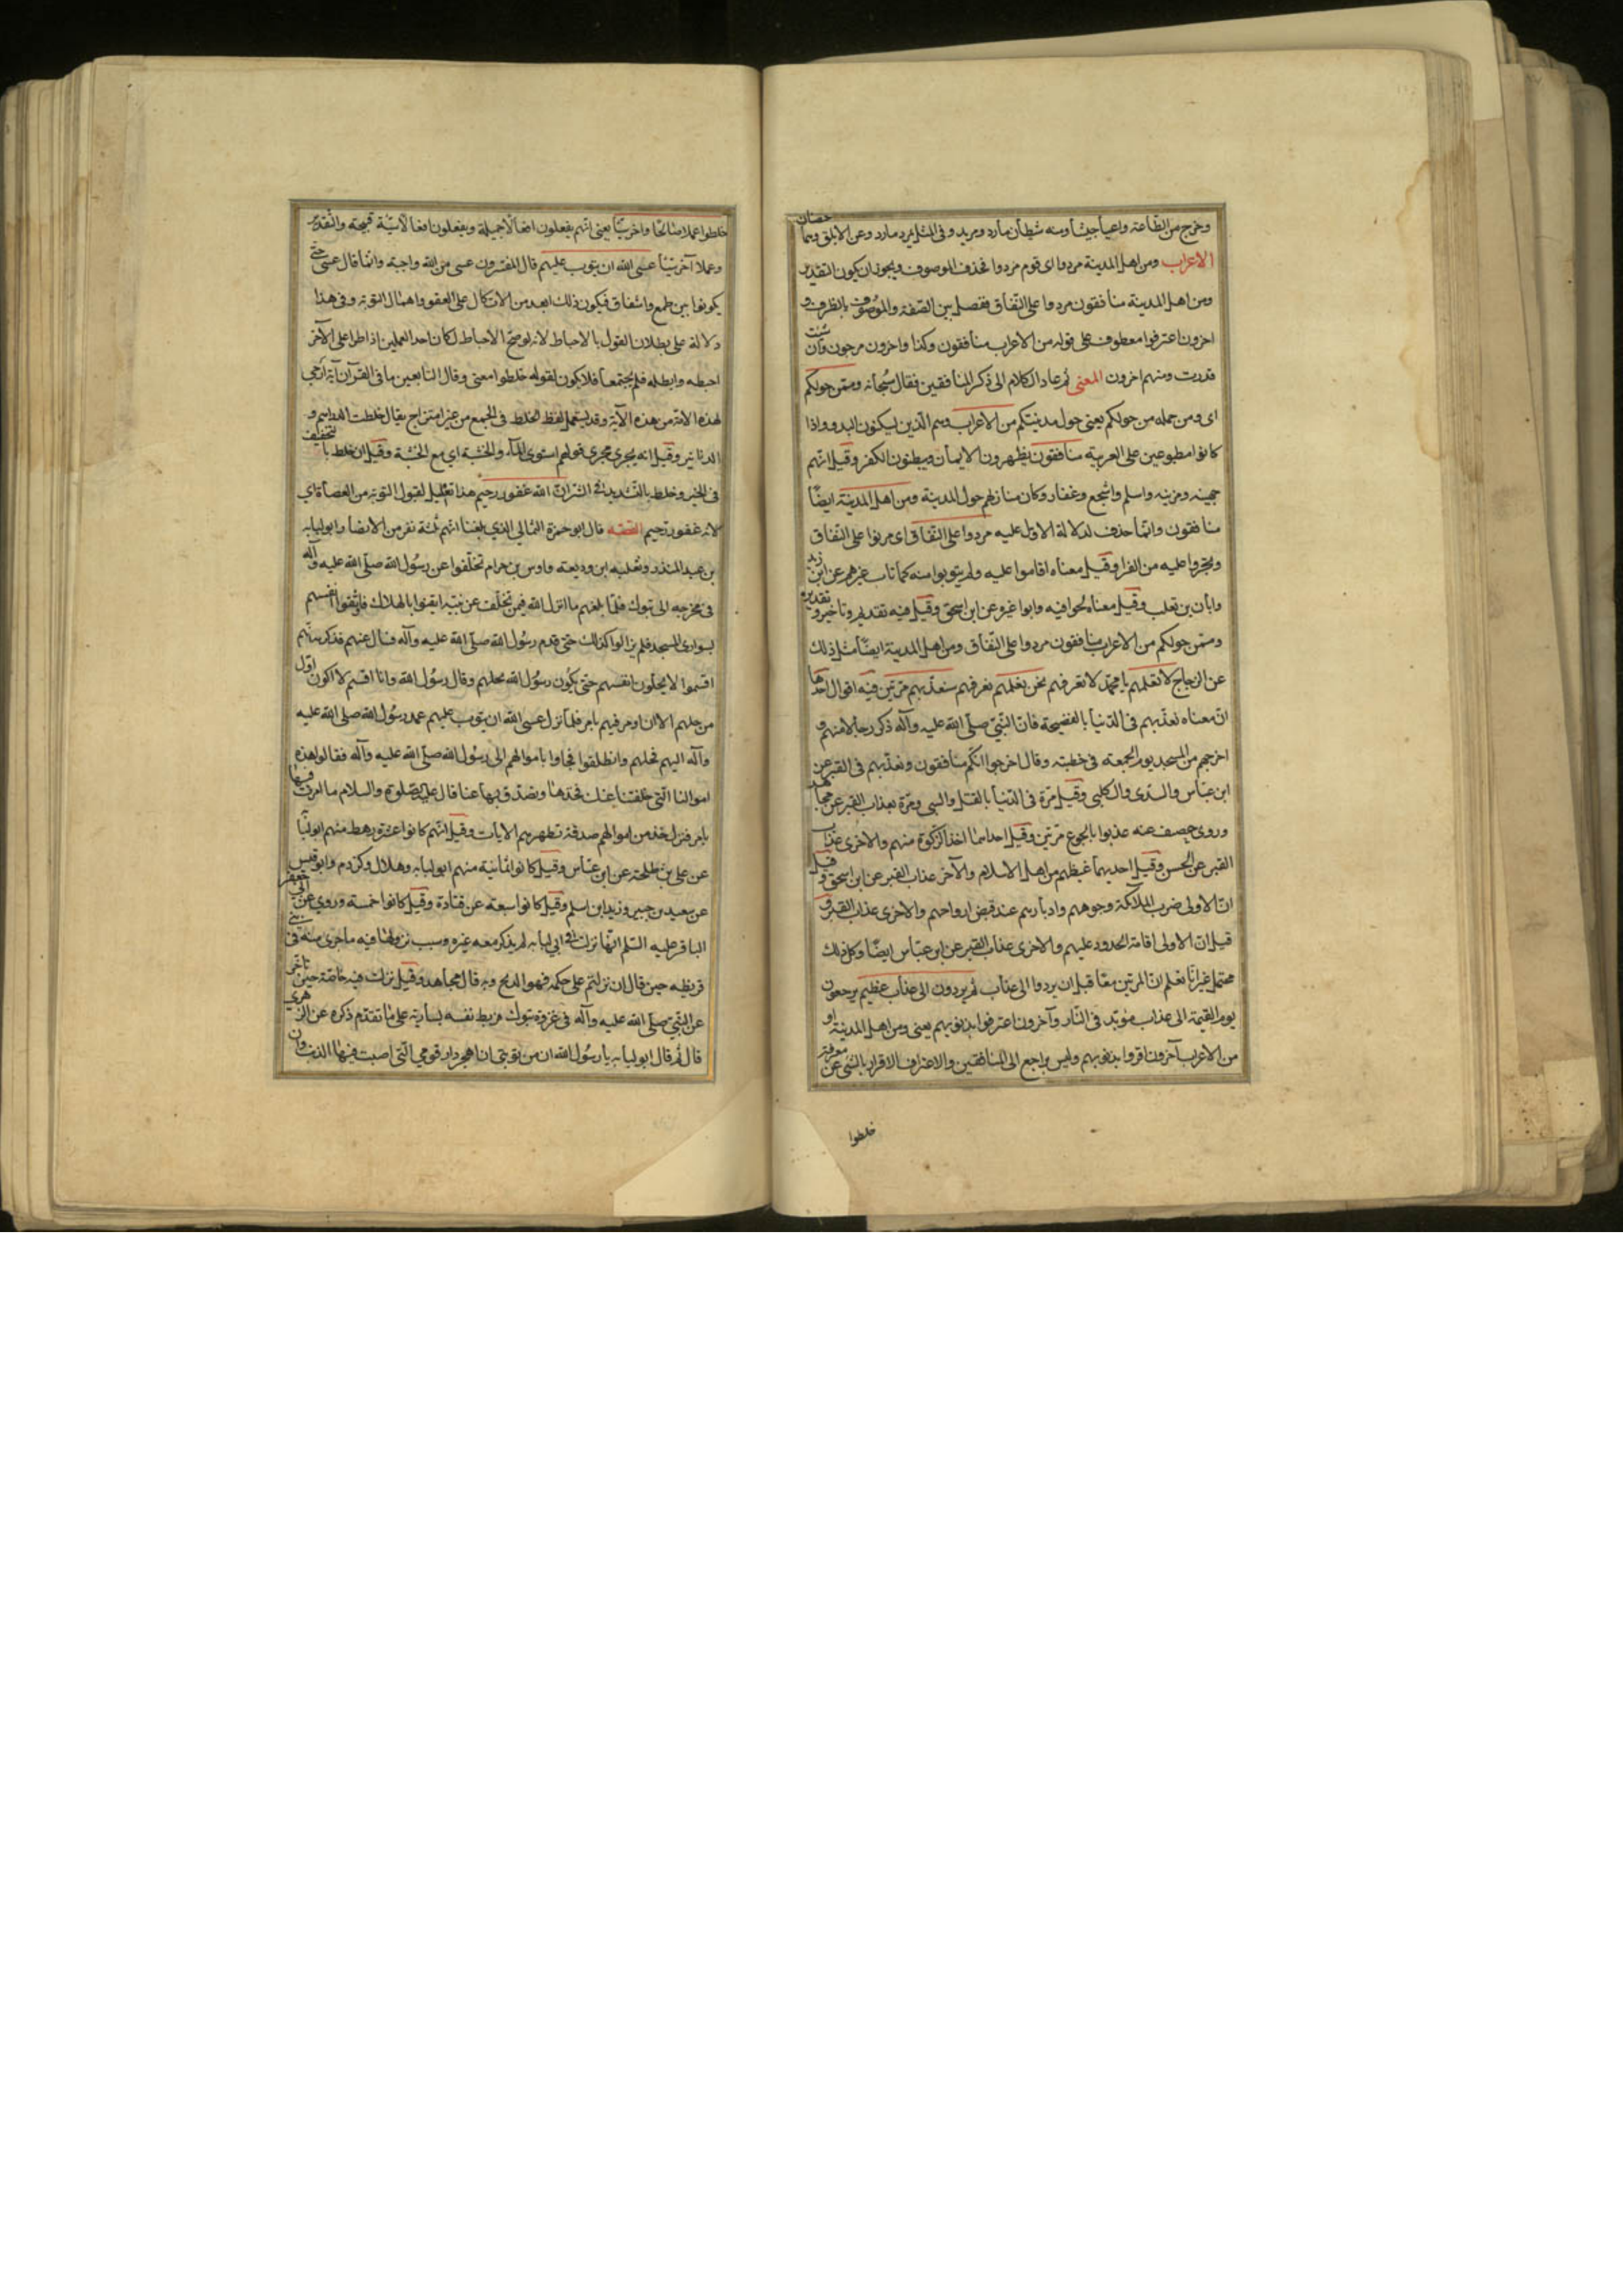 وخرج من الطاعة واعيا خبيثا ومنه شيطان مارد ومريد وفى المثل تمرد مارد وعن الابلق وهما حصنان
الاعراب ومن اهل المدينة مردوا اى قوم مردوا فحذف الموصوف ويجوز ان يكون التقدير
ومن اهل المدينة منافقون مردوا على النفاق ففصل بين الصفة والموصوف بالظرف و
اخرون اعترفوا معطوف على قوله من الاعراب منافقون وكذا واخرون مرجون وان شئت
قدرت ومنهم اخرون المعنى ثم عاد الكلام الى ذكر المنافقين فقال سبحانه وممن حولكم
اى ومن جمله من حولكم يعنى حول مدينتكم من الاعراب وهم الذين يسكنون البدو واذا
كانوا مطبوعين على العربية منافقون يظهرون الايمان ويبطنون الكفر وقيل انهم
جهينه ومزينه واسلم واشجع وغفار وكان منازلهم حول المدينة ومن اهل المدينة ايضا
منافقون وانما حذف لدلالة الاول عليه مردوا على النفاق اى مرنوا على النفاق
وتجروا عليه من الفرا وقيل معناه اقاموا عليه ولم يتوبوا منه كما تاب غيرهم عن ابن زيد
وابان بن تغلب وقيل معناه لجوا فيه وابوا غيره عن ابن اسحق وقيل فيه تقديم وتاخير وتقديره
وممن حولكم من الاعراب منافقون مردوا على النفاق ومن اهل المدينة ايضا مثل ذلك
عن الزجاج لا تعلمهم يا محمد لا تعرفهم نحن نعلمهم نعرفهم سنعذبهم مرتين فيه اقوال احدها
ان معناه نعذبهم فى الدنيا بالفضيحة فان النبى صلى الله عليه وآله ذكر رجالا منهم و
اخرجهم من المسجد يوم الجمعه فى خطبته وقال اخرجوا انكم منافقون ونعذبهم فى القبر عن
ابن عباس والسدى والكلبى وقيل مرة فى الدنيا بالقتل والسبى ومرة بعذاب القبر عن مجاهد
وروى خصيف عنه عذبوا بالجوع مرتين وقيل احداهما اخذ الزكوة منهم والاخرى عذاب
القبر عن الحسن وقيل احديهما غيظهم من اهل الاسلام والآخر عذاب القبر عن ابن اسحق وقيل
ان الاولى ضرب الملائكة وجوههم وادبارهم عند قبض ارواحهم والاخرى عذاب القبر و
قيل ان الاولى اقامة الحدود عليهم والاخرى عذاب القبر عن ابن عباس ايضا وكل ذلك
محتمل غير انا نعلم ان المرتين معا قبل ان يردوا الى عذاب ثم يردون الى عذاب عظيم يرجعون
يوم القيمة الى عذاب مؤبد فى النار وآخرون اعترفوا بذنوبهم يعنى ومن اهل المدينة او
من الاعراب آخرون اقروا بذنوبهم وليس براجع الى المنافقين والاعتراف الاقرار بالشى عن معرفة
خلطوا
خلطوا عملا صالحا واخر سيئا يعنى انهم يفعلون افعالا جميلة ويفعلون افعالا سيئة قبيحة والتقدير
وعملا آخر سيئا عسى الله ان يتوب عليهم قال المفسرون عسى من الله واجبة وانما قال عسى حتى
يكونوا بين طمع واشفاق فيكون ذلك ابعد من الاتكال على العفو واهمال التوبة وفى هذا
دلالة على بطلان القول بالاحباط لانه لو صح الاحباط لكان احد العملين اذا طرا على الآخر
احبطه وابطله فلم يجتمعا فلا يكون لقوله خلطوا معنى وقال التابعين ما فى القرآن آية ارجى
لهذه الامة من هذه الآية وقد يستعمل لفظ الخلط فى الجمع من غير امتزاج يقال خلطت الدراهم و
الدنانير وقيل انه يجرى مجرى قولهم استوى الماء والخشبة اى مع الخشبة وقيل ان خلط بالتخفيف
فى الخير وخلط بالتشديد فى الشر ان الله غفور رحيم هذا تعليل لقبول التوبة من العصاة اى
لانه غفور رحيم القصه قال ابو حمزة الثمالى الذى بلغنا انهم ثلثة نفر من الانصار ابو لبابه
بن عبد المنذر وثعلبه ابن وديعته واوس بن حرام تخلفوا عن رسول الله صلى الله عليه وآله
فى مخرجه الى تبوك فلما بلغهم ما انزل الله فيمن تخلف عن نبيه ايقنوا بالهلاك فاوثقوا انفسهم
بسوارى المسجد فلم يزالوا كذلك حتى قدم رسول الله صلى الله عليه وآله فسال عنهم فذكر انهم
اقسموا لا يحلون انفسهم حتى يكون رسول الله يحلهم وقال رسول الله وانا اقسم لا اكون اول
من حلهم الا ان اومر فيهم بامر فلما نزل عسى الله ان يتوب عليهم عمد رسول الله صلى الله عليه
وآله اليهم فحلهم وانطلقوا فجاوا باموالهم الى رسول الله صلى الله عليه وآله فقالوا هذه
اموالنا التى خلفتنا عنك فخذها وتصدق بها عنا قال عليه الصلوة والسلام ما امرت فيها
بامر فنزل خذ من اموالهم صدقة تطهرهم الايات وقيل انهم كانوا عشرة رهط منهم ابو لبابه
عن على بن طلحة عن ابن عباس وقيل كانوا ثمانية منهم ابو لبابه وهلال وكردم وابو قيس
عن سعيد بن جبير وزيد ابن اسلم وقيل كانوا سبعة عن قتادة وقيل كانوا خمسة وروى عن ابى جعفر
الباقر عليه السلم انها نزلت فى ابى لبابه لم يذكر معه غيره وسبب نزولها فيه ما جرى منه فى بنى
قريظه حين قال ان نزلتم على حكمه فهو الذبح وبه قال مجاهد وقيل نزلت فيه خاصة حين تاخر
عن النبى صلى الله عليه وآله فى غزوة تبوك فربط نفسه بسارية على ما تقدم ذكره عن الزهرى
قال ثم قال ابو لبابه يا رسول الله ان من توبتى ان اهجر دار قومى التى اصبت فيها الذنب وان